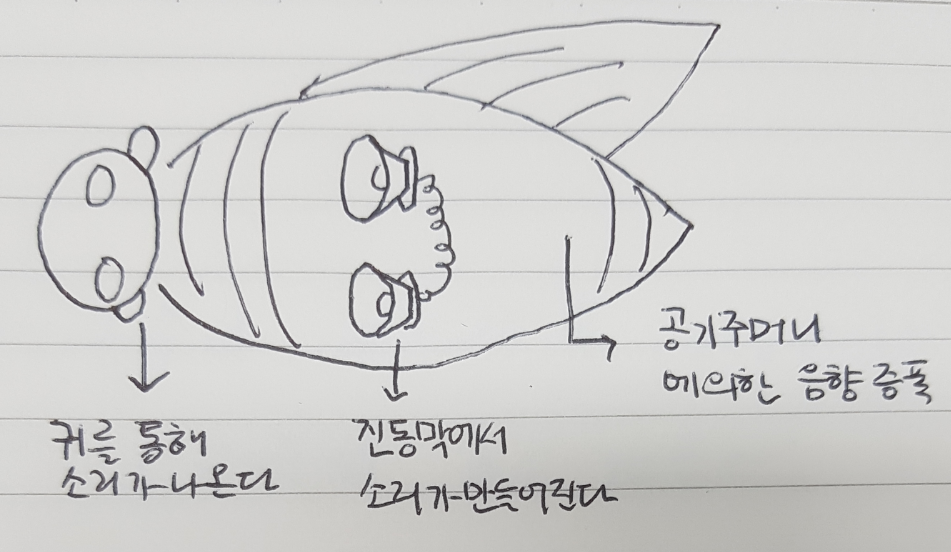 귀를 통해
소리가 나온다
진동막에서
소리가 만들어진다
공기주머니
에의한 음향 증폭